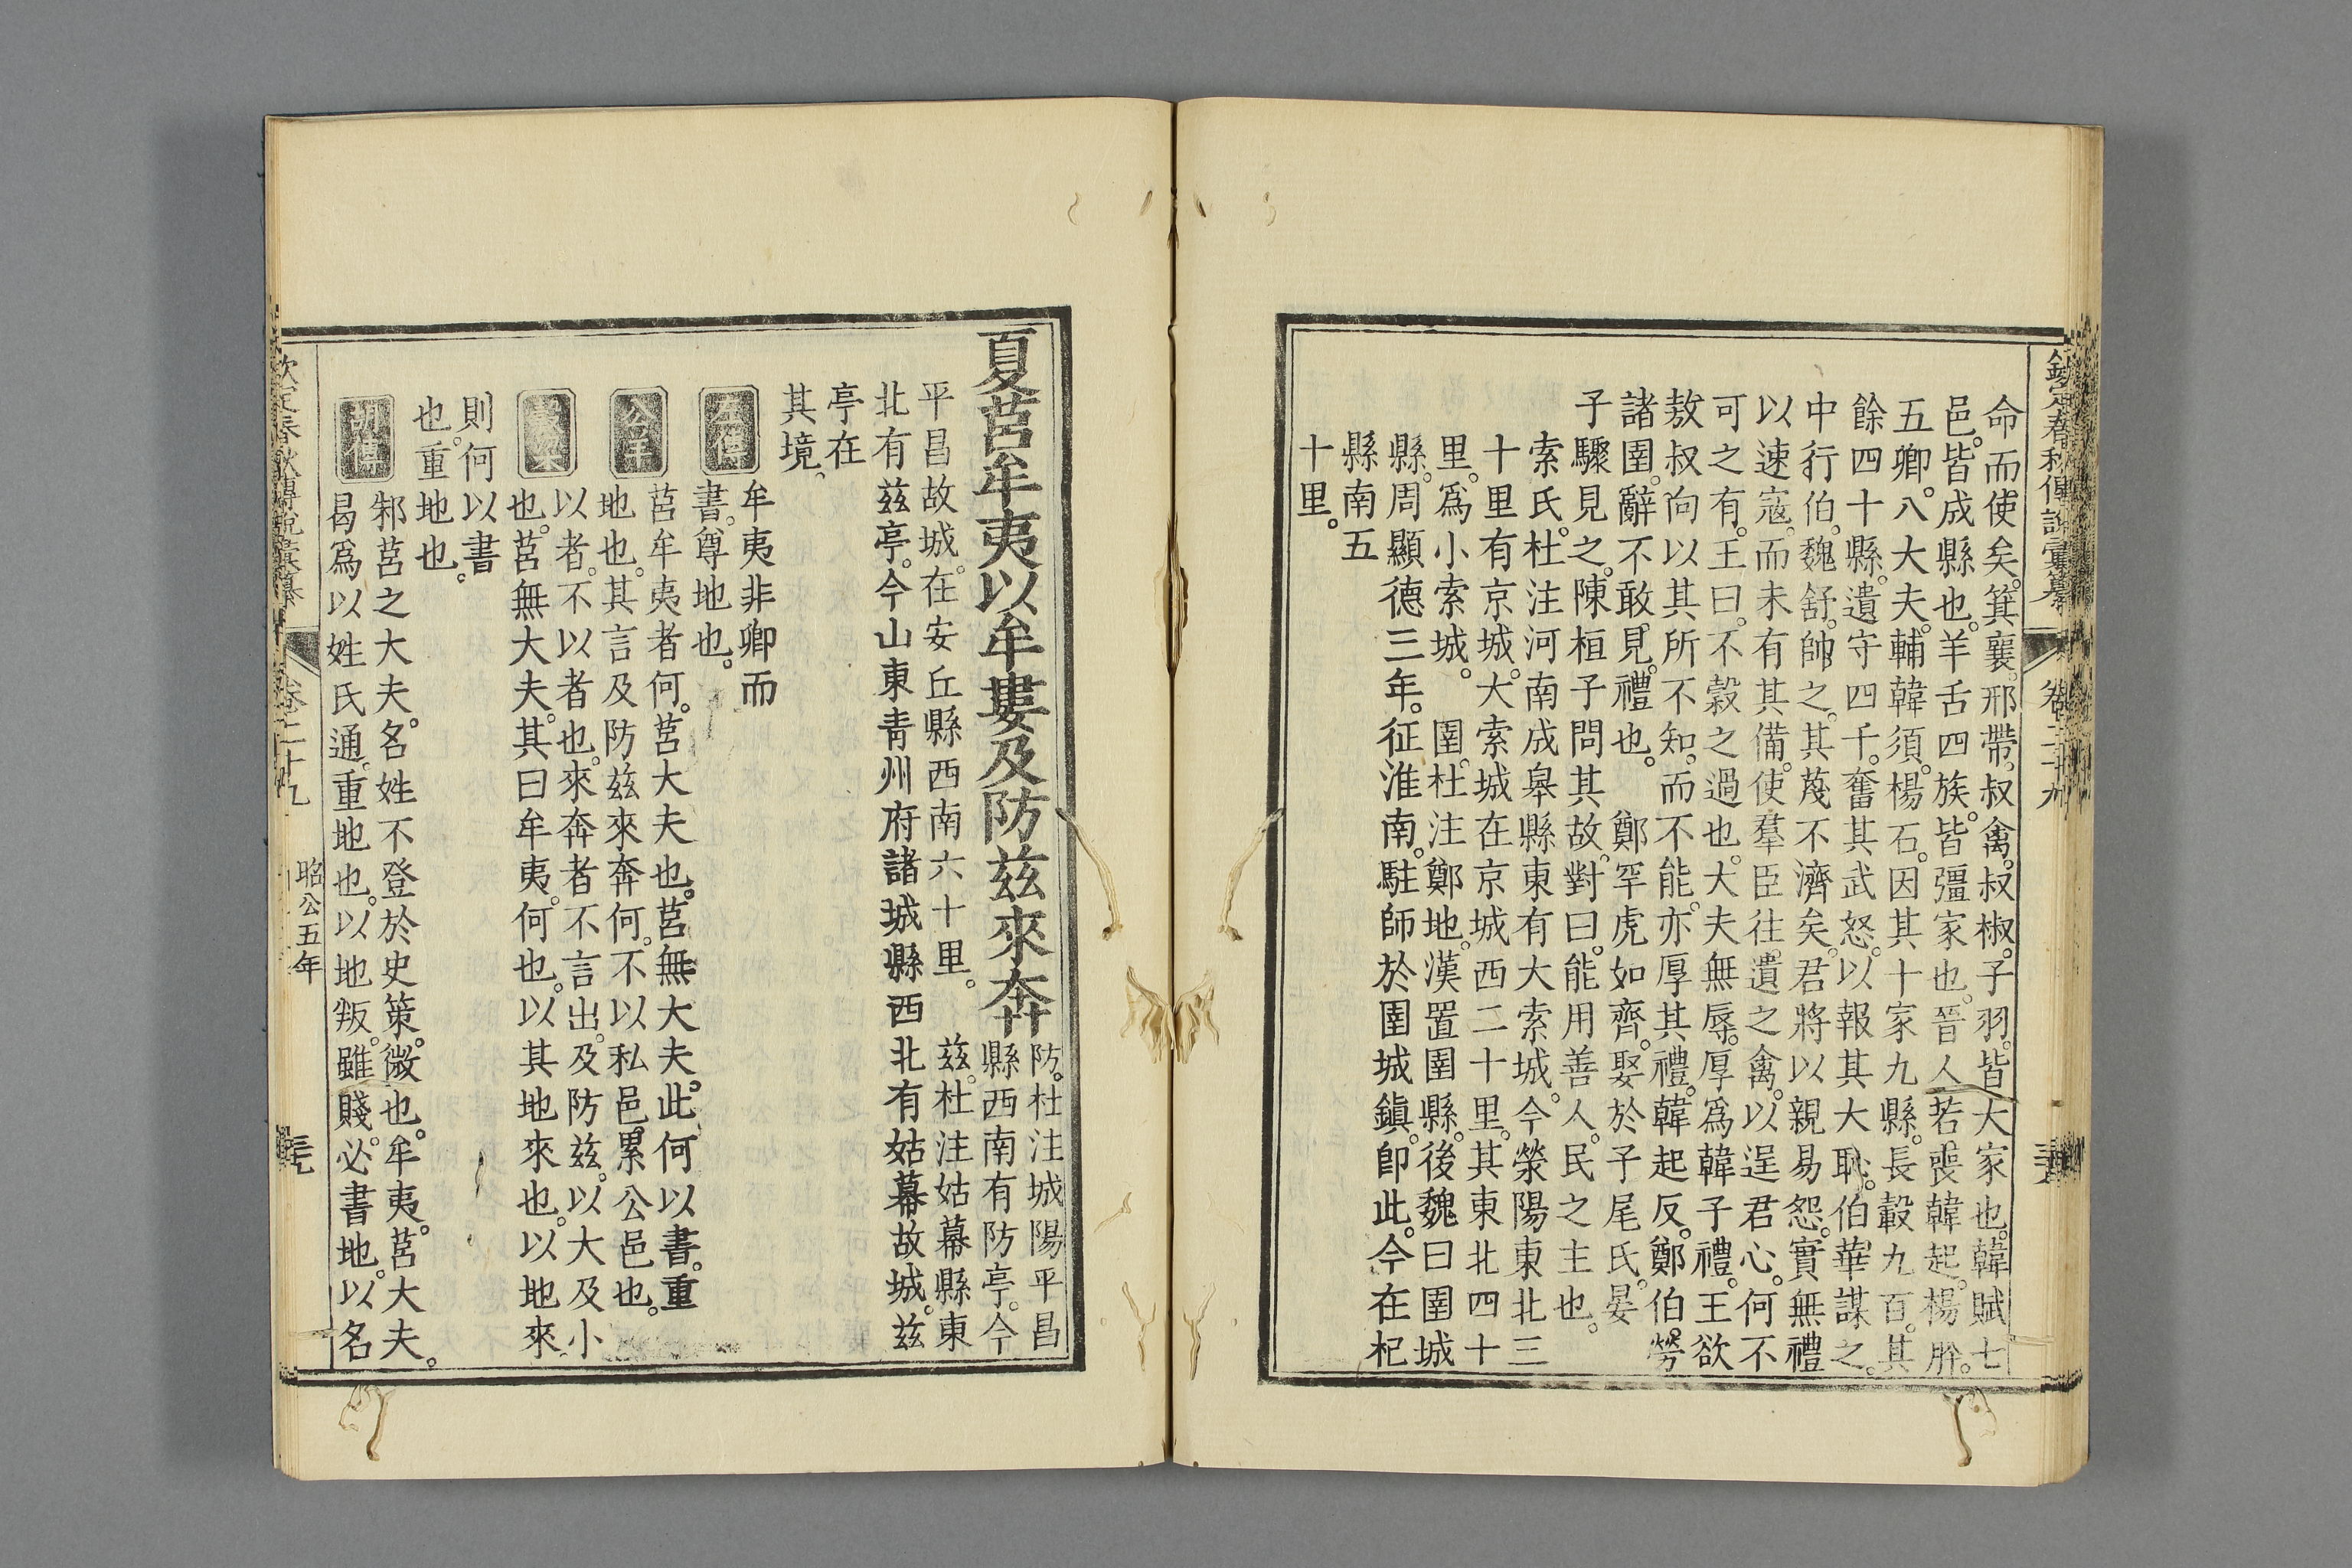 欽定春秋傳說彙纂
卷二十九
命而使矣。箕襄。邢帶。叔禽。叔椒。子羽。皆大家也。韓賦七
邑。皆成縣也。羊舌四族。皆彊家也。晉人若喪韓起。楊肸。
五卿。八大夫。輔韓須。楊石。因其十家九縣。長轂九百。其
餘四十縣。遺守四千。奮其武怒。以報其大恥。伯華謀之。
中行伯。魏舒。帥之。其蔑不濟矣。君將以親易怨。實無禮
以速寇。而未有其備。使羣臣往。遺之禽。以逞君心。何不
可之有。王曰。不穀之過也。大夫無辱。厚爲韓子禮。王欲
敖叔向以其所不知。而不能。亦厚其禮。韓起反。鄭伯勞
諸圉。辭不敢見。禮也。 鄭罕虎如齊。娶於子尾氏。晏
子驟見之。陳桓子問其故。對曰。能用善人。民之主也。
索氏。杜注河南成皋縣東有大索城。今滎陽東北三
十里有京城。大索城在京城西二十里。其東北四十
里。爲小索城。 圉。杜注鄭地。漢置圉縣。後魏曰圉城
縣。周顯德三年。征淮南。駐師於圉城鎮。卽此。今在杞
縣南五
十里。
夏莒牟夷以牟婁及防茲來奔
防。杜注城陽平昌
縣西南有防亭。今
平昌故城。在安丘縣西南六十里。 茲。杜注姑幕縣東
北有茲亭。今山東靑州府諸城縣西北有姑幕故城。茲
亭在
其境。
左傳
牟夷非卿而
書。尊地也。
公羊
莒牟夷者何。莒大夫也。莒無大夫。此何以書。重
地也。其言及防茲來奔何。不以私邑。累公邑也。
穀梁
以者。不以者也。來奔者不言出。及防茲。以大及小
也。莒無大夫。其曰牟夷。何也。以其地來也。以地來。
則何以書
也。重地也。
胡傳
邾莒之大夫。名姓不登於史策。微也。牟夷。莒大夫。
曷爲以姓氏通。重地也。以地叛。雖賤。必書地。以名
欽定春秋傳說彙纂
卷二十九
昭公五年